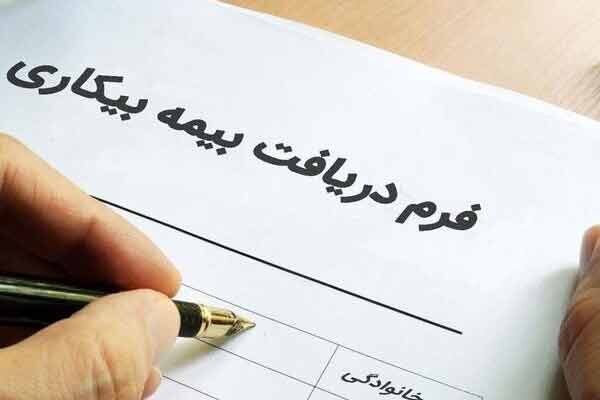 فرم دریافت بیمه بیکاری
خانوادگی